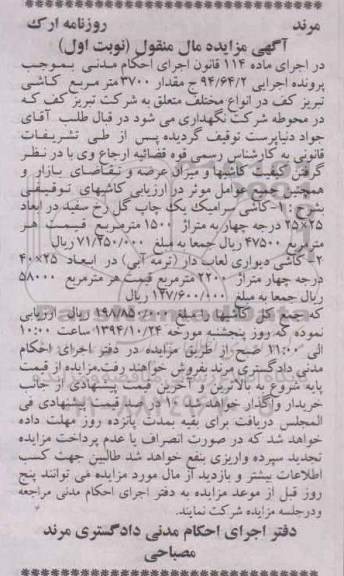 مرند روزنامه ارک
آگهی مزایده مال منقول (نوبت اول)
در اجرای ماده ۱۱۴ قانون اجرای احکام مدنی بموجب
پرونده اجرایی ۹۴/۶۴/۲ ج مقدار ۳۷۰۰ متر مربع کاشی
تبریز کف در انواع مختلف متعلق به شرکت تبریز کف که
در محوطه شرکت نگهداری می شود در قبال طلب آقای
جواد دنیاپرست توقیف گردیده پس از طی تشریفات
قانونی به کارشناس رسمی قوه قضائیه ارجاع وی با در نظر
گرفتن کیفیت کاشیها و میزان عرضه و تقاضای بازار و
همچنین جمیع عوامل موثر در ارزیابی کاشیهای توقیفی
بشرح : ۱- کاشی سرامیک یک چاپ گل رخ سفید در ابعاد
۲۵×۲۵ درجه چهار به متراژ ۱۵۰۰ مترمربع قیمت هر
مترمربع ۴۷۵۰۰ ریال جمعا به مبلغ ۷۱/۲۵۰/۰۰۰ ریال
۲- کاشی دیواری لعاب دار (ترمه آبی) در ابعاد ۲۵×۴۰
درجه چهار متراژ ۲۲۰۰ مترمربع قیمت هر مترمربع ۵۸۰۰۰
ریال جمعا به مبلغ ۱۲۷/۶۰۰/۰۰۰ ریال
که جمع کل کاشیها را مبلغ ۱۹۸/۸۵۰/۰۰۰ ریال ارزیابی
نموده که روز پنجشنبه مورخه ۱۳۹۴/۱۰/۲۴ ساعت ۱۰:۰۰
الی ۱۱:۰۰ صبح از طریق مزایده در دفتر اجرای احکام
مدنی دادگستری مرند بفروش خواهند رفت.مزایده از قیمت
پایه شروع به بالاترین و آخرین قیمت پیشنهادی از جانب
خریدار واگذار خواهد شد ۱۰ در صد قیمت پیشنهادی فی
المجلس دریافت برای بقیه بمدت پانزده روز مهلت داده
خواهد شد که در صورت انصراف یا عدم پرداخت مزایده
تجدید سپرده واریزی بنفع خواهد شد طالبین جهت کسب
اطلاعات بیشتر و بازدید از مال مورد مزایده می توانند پنج
روز قبل از موعد مزایده به دفتر اجرای احکام مدنی مراجعه
ودرجلسه مزایده شرکت نمایند.
دفتر اجرای احکام مدنی دادگستری مرند
مصباحی